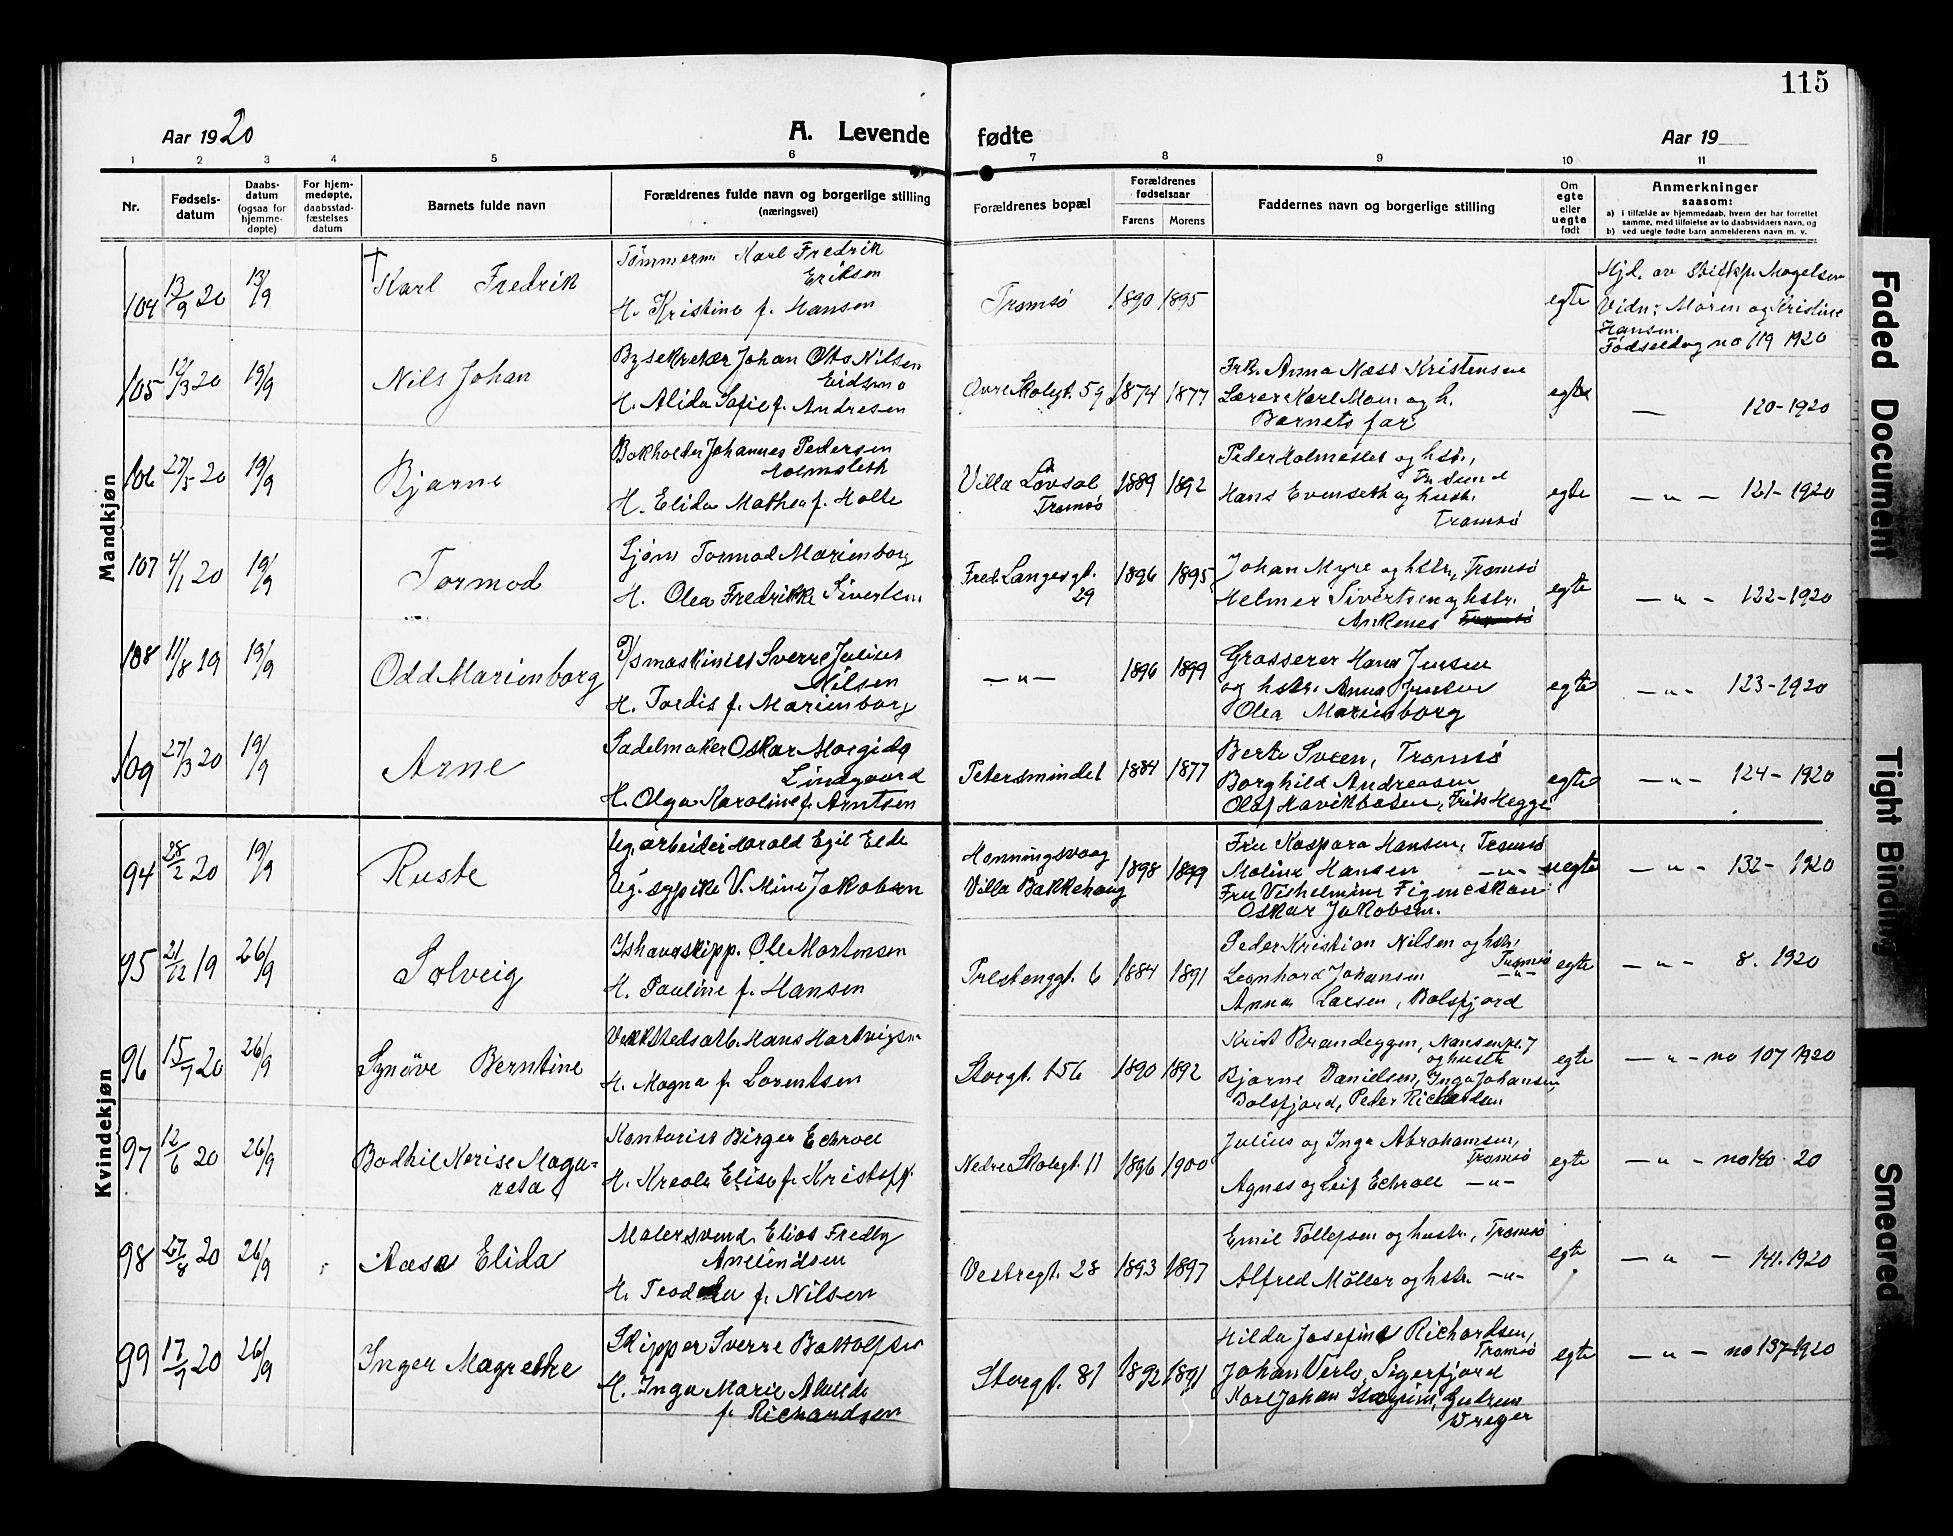 115
Aar 1920
A. Levende fødte
Aar 19
1 2 3 4 5 6 7 8 9 10 11
Nr.
Fødsels-
datum
Daabs-
datum
(ogsaa for
hjemme-
døpte)
For hjem-
medøpte,
daabsstad-
fæstelses
datum
Barnets fulde navn
Forældrenes fulde navn og borgerlige stilling
(næringsvei)
Forældrenes bopæl
Forældrenes
fødselsaar
Farens Morens
Faddernes navn og borgerlige stilling
Om
egte
eller
uegte
født
Anmerkninger
saasom:
a) i tilfælde av hjemmedaab, hvem der har forrettet
samme, med tilføielse av to daabsvidners navn, og
b) ved uegte fødte barn anmelderens navn m. v.
Mandkjøn
104 13/9 20 13/9
† Karl Fredrik
Tømmerm Karl Fredrik
Eriksen
H. Kristine f. Hansen
Tromsø 1890 1895
egte
Hjd. av Mogelsen
Vidn: Maren og Kristine
Hansen.
Fødseldag no 119 1920
105 12/3 20 19/9
Nils Johan
Bysekretær Johan Otto Nilsen
Eidsmo
H. Alida Sofie f. Andresen
Øvre Skolegt. 59 1874 1877
Frk. Anna Næss Kristensen
Lærer Karl Moen og h.
Barnets far
egte
— 120-1920
106 27/5 20 19/9
Bjarne
Bokholder Johannes Pedersen
Holmsleth
H. Elida Mathea f. Holte
Villa Løvsal
Tromsø
1889 1892
Peder Holmeslet og hstr.,
Hans Evenseth og hustr.
Tromsø
egte
— " — 121-1920
107 4/1 20 19/9
Tormod
Sjøm Tormod Marienborg
H. Olea Fredrikke Sivertsen
Fred Langesgt.
29
1896 1895
Johan Myre og hstr., Tromsø
Helmer Sivertsen og hstr.
Ankenes Tromsø
egte
— " — 122-1920
108 11/8 19 19/9
Odd Marienborg
D/smaskinist Sverre Julius
Nilsen
H. Tordis f. Marienborg
— " —
1896 1899
Grosserer Hans Jensen
og hstr. Anna Jensen
Olea Marienborg
egte
— " — 123-1920
109 27/3 20 19/9
Arne
Sadelmaker Oskar
Lindgaard
H. Olga Karoline f. Arntsen
Petersmindet 1884 1877
Berte Sveen, Tromsø
Borghild Andreasen
Olaf Havikbosen, Frits Hegge
egte
— " — 124-1920
Kvindekjøn
94 28/2 20 19/9
Ruste
Ug. arbeider Harald Egil Elde
Ug. sypike V. Mine Jakobsen
Honningsvaag
Villa Bakkehaug
1898 1899
Fru Kaspara Hansen, Tromsø
Moline Hansen — " —
Fru Vilhelmine Figeneskau
Oskar Jakobsen.
uegte
— " — 132-1920
95 21/12 19 26/9
Solveig
Ishavsskipp. Ole Mortensen
H. Pauline f. Hansen
Prestenggt. 6 1884 1891
Peder Kristian Nilsen og hstr.
Tromsø
Leonhard Johansen — " —
Anna Larsen, Balsfjord
egte
— " — 8. 1920
96 15/7 20 26/9
Synöve Berntine
Verkstedsarb. Hans Hartvigsen
H. Magna f. Lorentsen
Storgt. 156 1890 1892
Krist Brandeggen, Nansenpl. 7
og hustr
Bjarne Danielsen, Inga Johansen,
Balsfjord, Peder Richardsen
egte
— " — no 107 1920
97 12/6 20 26/9
Bodhil Nerise Maga-
reta
Kontorist Birger Echroll
H. Kreola Elise f. Kristoff.
Nedre Skolegt. 11 1896 1900
Julius og Inga Abrahamsen,
Tromsø
Agnes og Leif Echroll — " —
egte
— " — no 140. 20
98 27/8 20 26/9
Aase Elida
Malersvend Elias Fredly
H. f. Nilsen
Vestregt. 28 1893 1897
Emil Tollefsen og hustr., Tromsø
Alfred Möller og hstr. — " —
egte
— " — 141. 1920
99 17/7 20 26/9
Inger Magrethe
Skipper Sverre Bottolfsen
H. Inga Marie
f. Richardsen
Storgt. 81 1892 1891
Hilda Josefine Richardsen,
Tromsø
Johan Verlo, Sigerfjord
Karl Johan Gudrun
Dreyer
egte
— " — no 137-1920
Faded Document
Tight Binding
Smeared